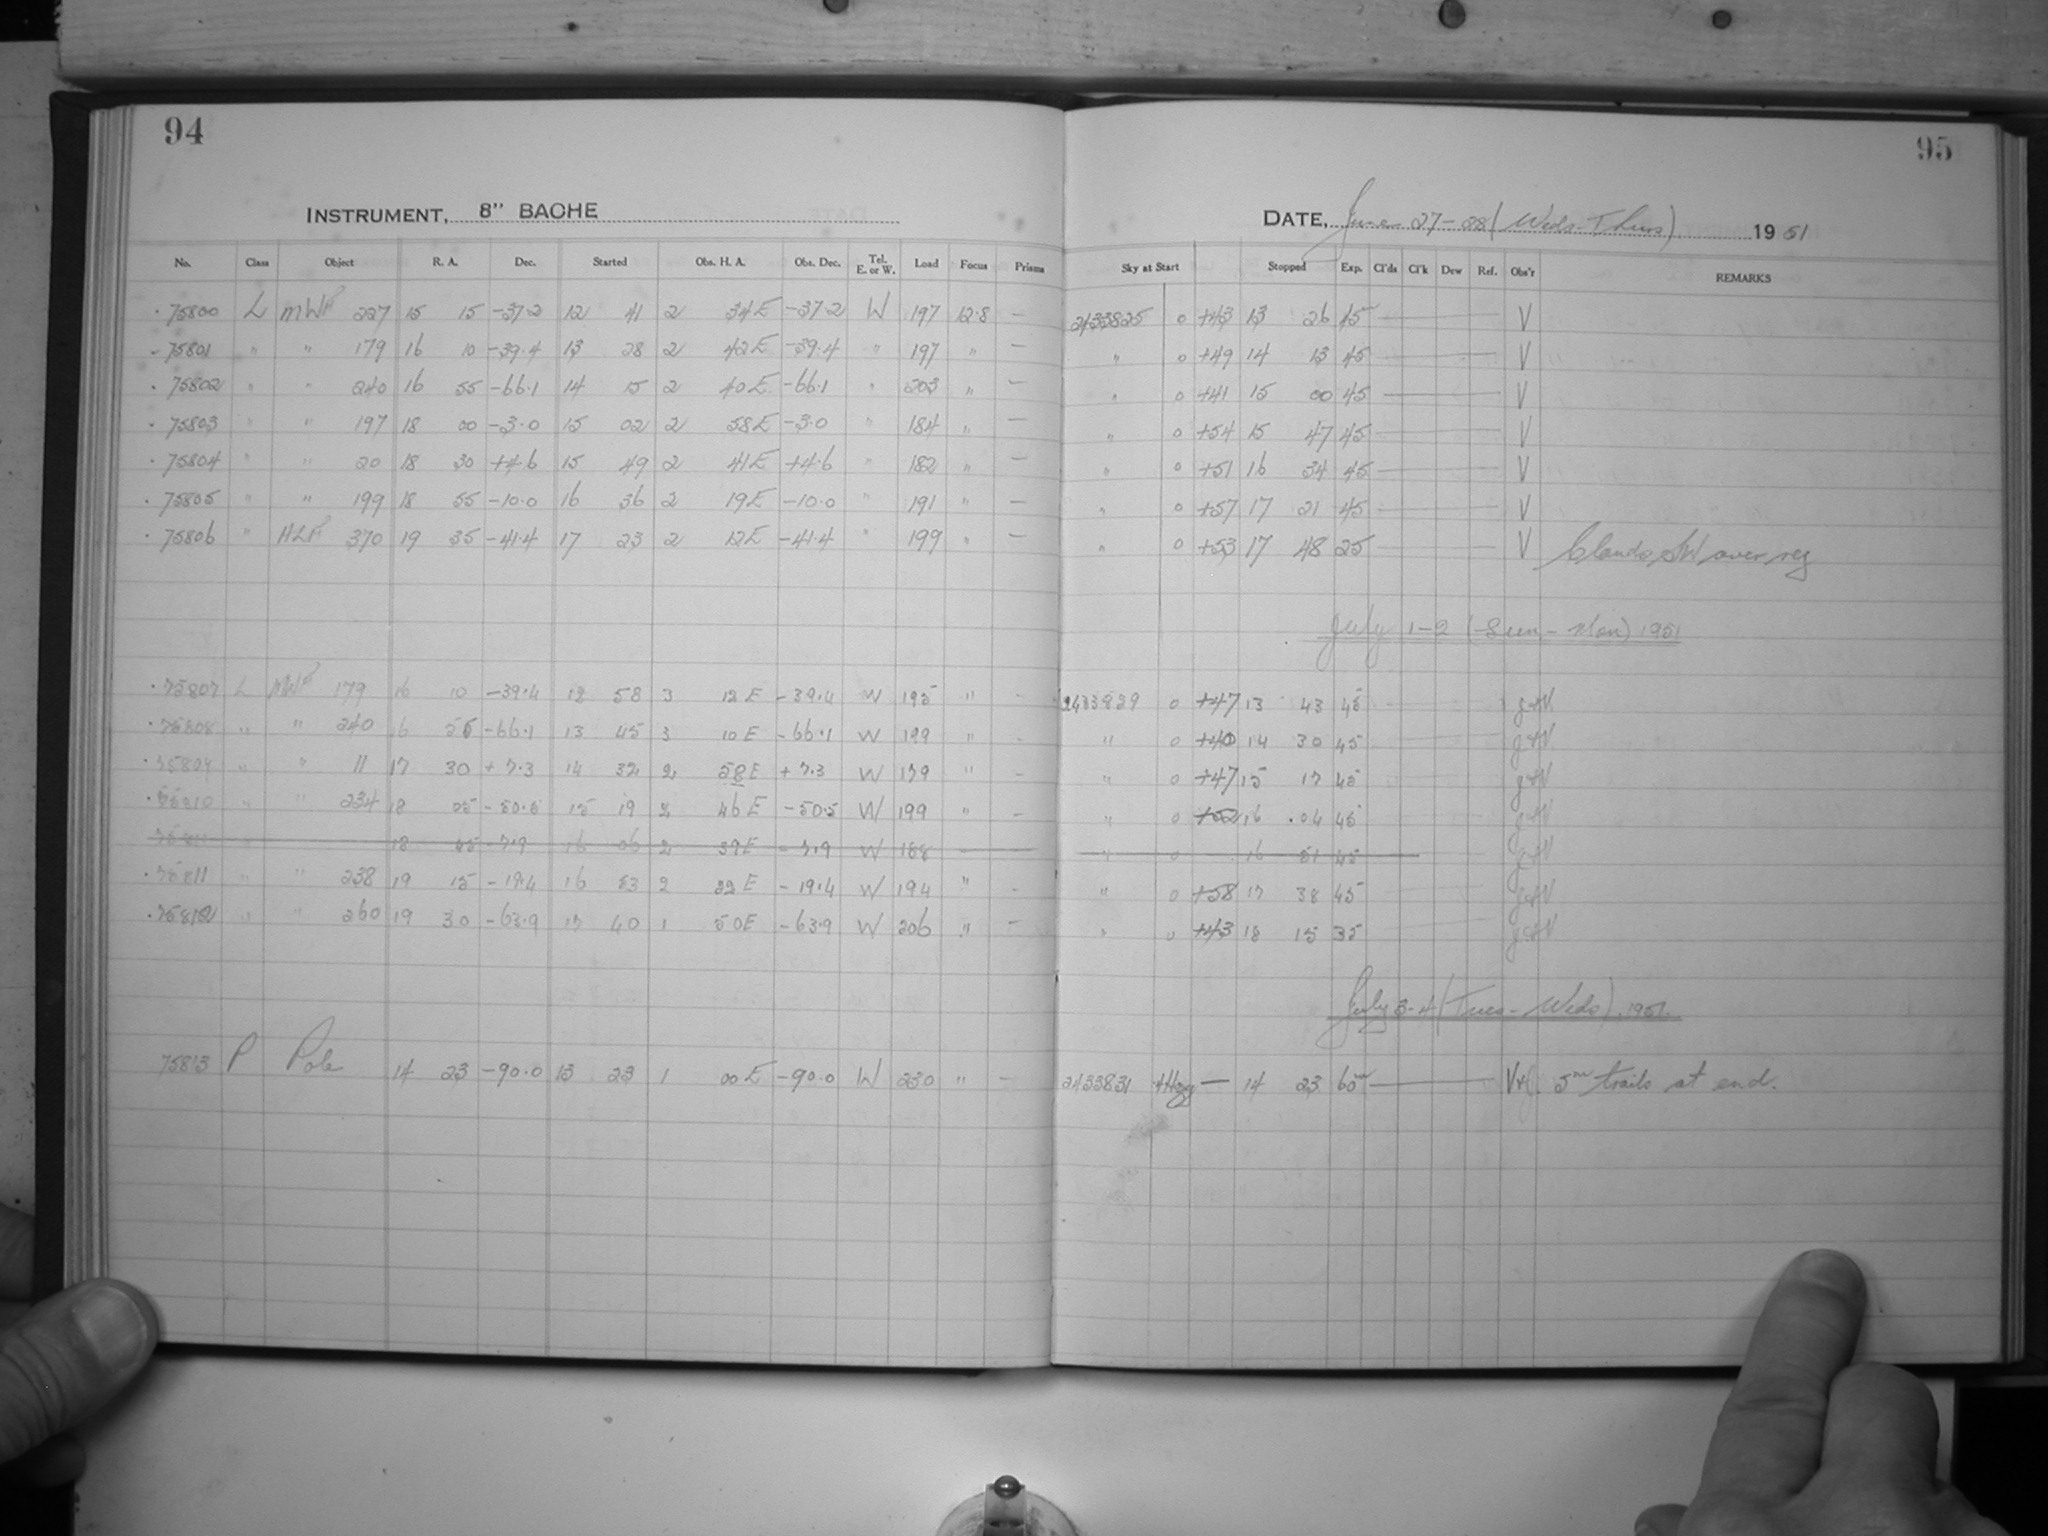 94
INSTRUMENT, 8" BACHE
No. Class Object R. A. Dec. Started Obs. H. A. Obs. Dec. Tel. E. or W. Load Focus Prisms
75800 L MWF 227 15 15 -37.2 12 41 2 34E -37.2 W 197 12.8 —
75801 " " 179 16 10 -39.4 13 28 2 42E -39.4 " 197 " —
75802 " " 240 16 55 -66.1 14 15 2 40E -66.1 " 203 " —
75803 " " 197 18 00 -3.0 15 02 2 58E -3.0 " 184 " —
75804 " " 20 18 30 +4.6 15 49 2 41E +4.6 " 182 " —
75805 " " 199 18 55 -10.0 16 36 2 19E -10.0 " 191 " —
75806 " HLF 370 19 35 -41.4 17 23 2 12E -41.4 " 199 " —
75807 L MWF 179 16 10 -39.4 12 58 3 12E -39.4 W 195 " —
75808 " " 240 16 55 -66.1 13 45 3 10E -66.1 W 199 " —
75809 " " 11 17 30 +7.3 14 32 2 58E +7.3 W 179 " —
75810 " " 234 18 05 -50.5 15 19 2 46E -50.5 W 199 " —
75811 18 45 -7.9 16 06 2 39E -7.9 W 188
75811 " " 238 19 15 -19.4 16 53 2 22E -19.4 W 194 " —
75812 " " 260 19 30 -63.9 17 40 1 50E -63.9 W 206 " —
75813 P Pole 14 23 -90.0 13 23 1 00E -90.0 W 230 " —
95
DATE, June 27-28 (Weds-Thurs) 1951
Sky at Start Stopped Exp. Cl'ds Cl'k Dew Ref. Obs'r REMARKS
2433825 0 +43 13 26 45 — V
" 0 +49 14 13 45 — V
" 0 +41 15 00 45 — V
" 0 +54 15 47 45 — V
" 0 +51 16 34 45 — V
" 0 +57 17 21 45 — V
" 0 +53 17 48 25 — V Clouds SW over reg
July 1-2 (Sun-Mon) 1951
2433829 0 +47 13 43 45
" 0 +40 14 30 45
" 0 +47 15 17 45
" 0 +52 16 04 45
" 0 16 51 45
" 0 +58 17 38 45
" 0 +43 18 15 35
July 3-4 (Tues-Weds) 1951
2433831 — 14 23 60m — 5m trails at end.